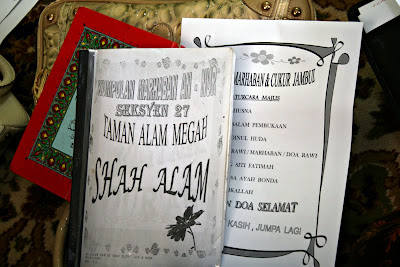 KUMPULAN MARHABAN AN - NUR
SEKSYEN 27
TAMAN ALAM MEGAH
SHAH ALAM
MARHABAN & CUKUR JAMBUL
ATURCARA MAJLIS
HUSNA
SALAM PEMBUKAAN
DINUL HUDA
RAWI / MARHABAN / DOA RAWI
SITI FATIMAH
SA AYAH BONDA
OKALLAH
DOA SELAMAT
KASIH , JUMPA LAGI